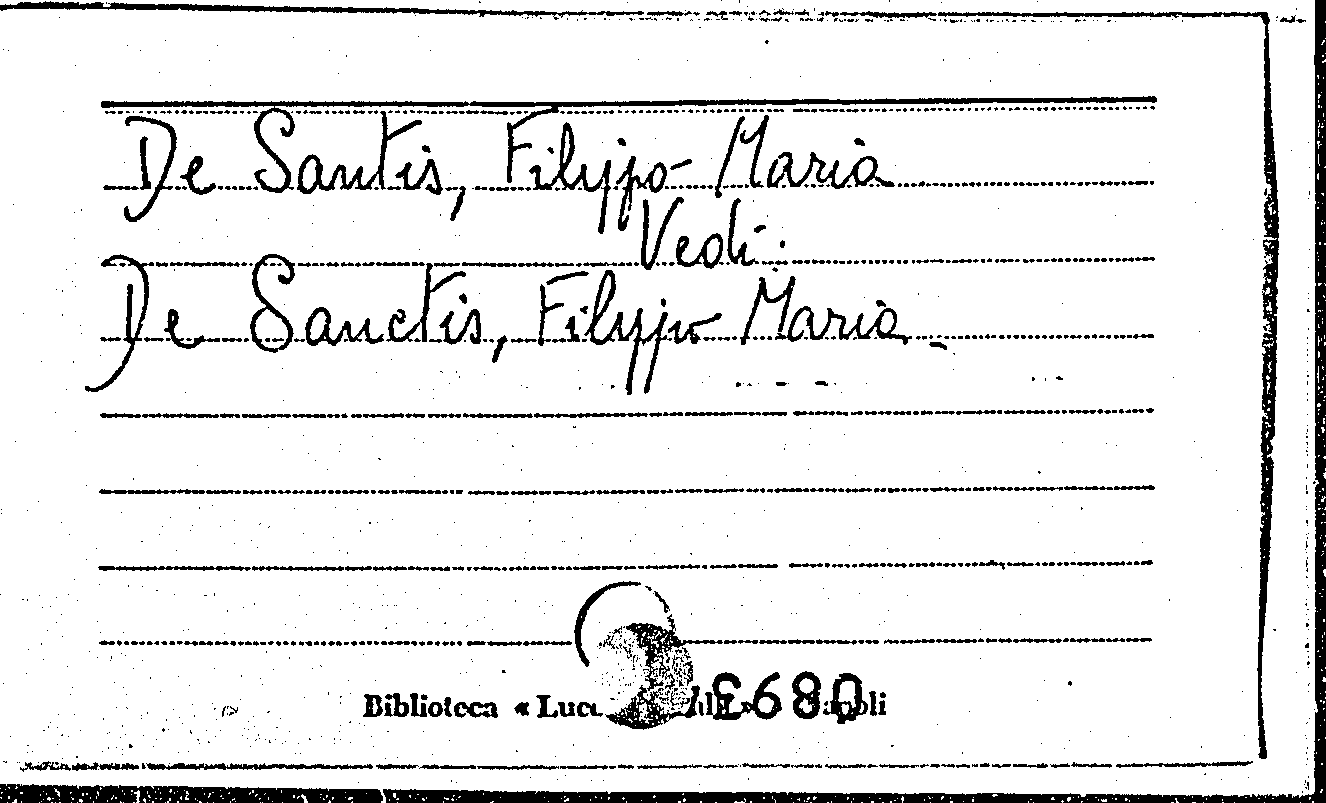 De Santis, Filippo Maria
Vedi:
De Sanctis, Filippo Maria.
Biblioteca « »
£680